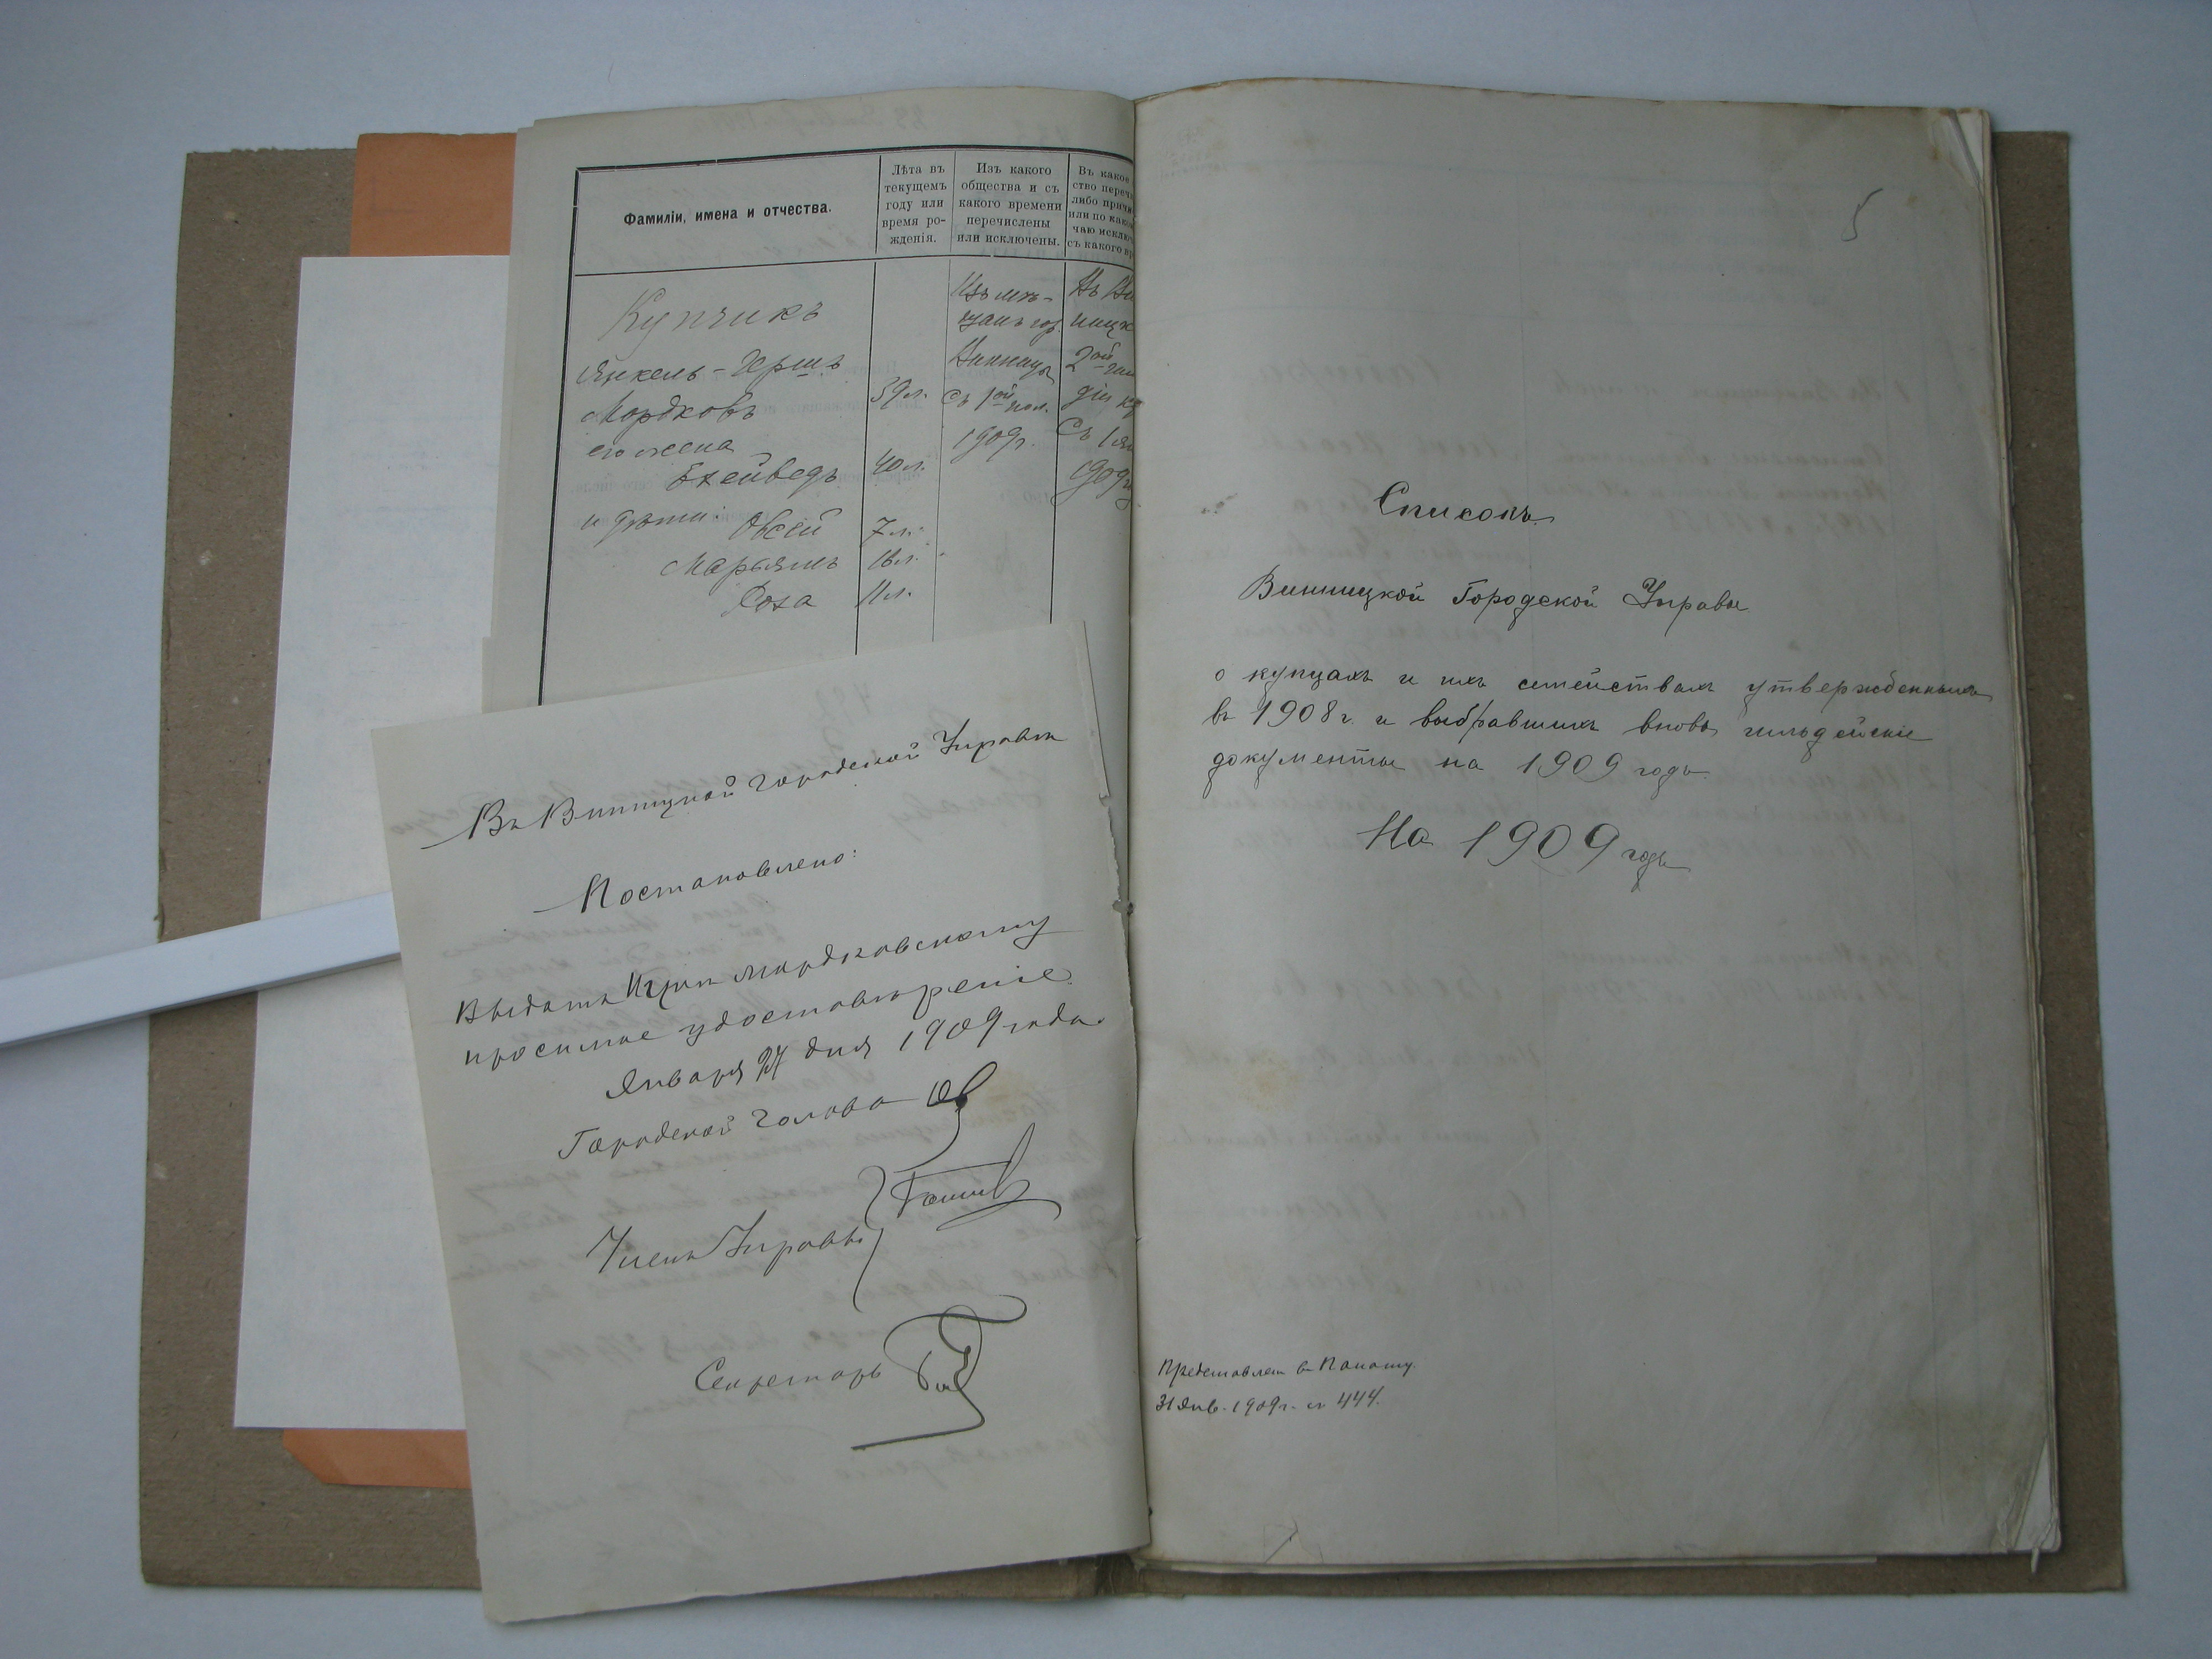 Фамиліи, имена и отчества.
Лѣта въ
текущемъ
году или
время ро-
жденія.
Изъ какого
общества и съ
какого времени
перечислены
или исключены.
Въ какое
ство переч
либо причи
или по како
чаю исклю
съ какого в
Купчикъ
Янкель-Гершъ
Мордковъ
59 л.
его жена
Ехейведъ
40 л.
и дѣти: Овсей
7 л.
Марьямъ
16 л.
Роза
11 л.
Изъ мѣ-
щанъ гор.
Винницы
съ 1ой пол.
1909 г.
Въ Ви
ницк
2ой гил
діи ку
съ 1 ян
1909 г.
Въ Винницкой Городской Управѣ
Постановлено:
Выдать Мордковскому
просимое удостовѣреніе.
Января 27 дня 1909 года.
Городской Голова
Члены Управы
Секретарь
5
Списокъ
Винницкой Городской Управы
о купцахъ и ихъ семействахъ утвержденныхъ
въ 1908 г. и выбравшихъ вновь гильдейскіе
документы на 1909 годъ.
На 1909 годъ
Представлен в Палату.
31 Янв. 1909 г. № 444.